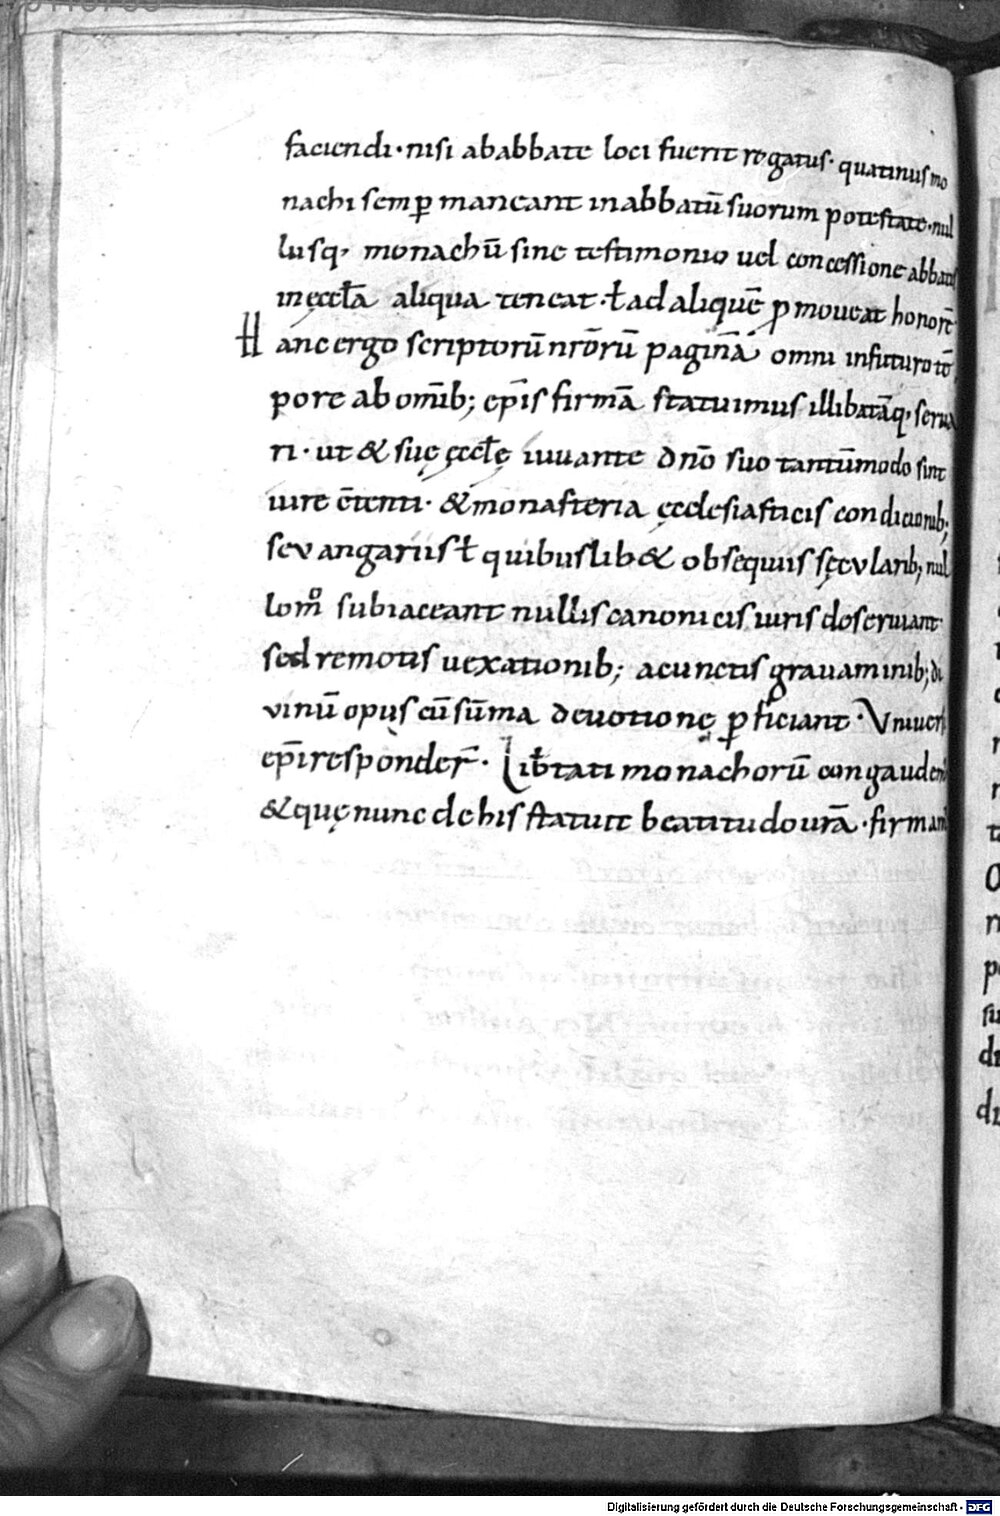 faciendi · nisi ab abbate loci fuerit rogatus · quatinus mo
nachi semp̱ maneant in abbatū suorum potestate · nul
lusq; monachū sine testimonio uel concessione abbatis
in ęccl̄a aliqua teneat · ł ad aliquē ꝓmoueat honorē
Hanc ergo scriptorū nr̄orū paginā omni in futuro tē
pore ab omīb; ep̄is firmā statuimus illibatāq; serua
ri · ut & suę ęccl̄ę iuuante dn̄o suo tantūmodo sint
iure c̄tenti · & monasteria ęcclesiasticis condicionib;
seu angariis ł quibuslib& obsequiis sęcularib; nul
lom̊ subiaceant nullis canonicis iuris deseruiant
sed remotis uexationib; a cunctis grauaminib; di
vinū opus cū sūma deuotione ꝑficiant · Vniuersi
ep̄i responder̄ · Lib̄tati monachorū congaudem̄
& quę nunc de his statuit beatitudo ur̄a · firmam̄
Digitalisierung gefördert durch die Deutsche Forschungsgemeinschaft - DFG